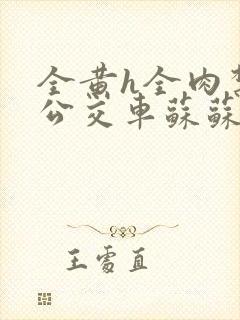 全黄h全肉
公交车蘇蘇
王雪直